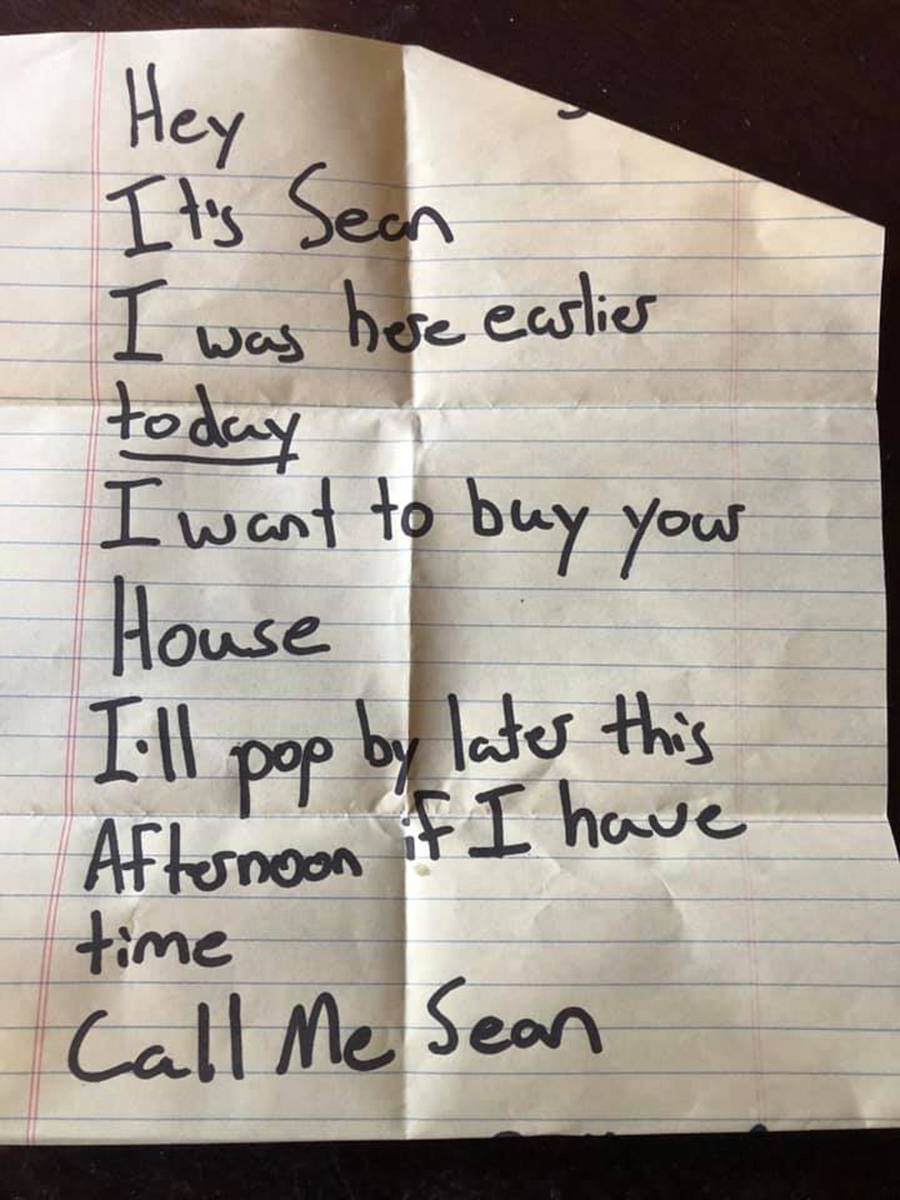 Hey
It's Sean
I was here earlier
today
I want to buy your
House
I'll pop by later this
Afternoon if I have
time
Call Me Sean